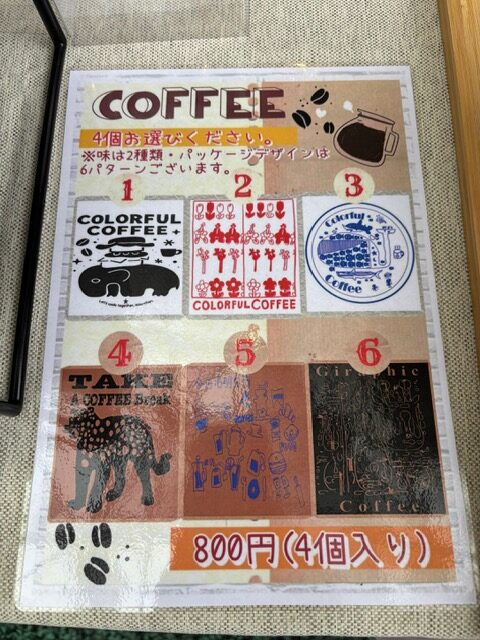 COFFEE
4個お選びください。
※味は2種類・パッケージデザインは
6パターンございます。
1
2
3
COLORFUL
COFFEE
COLORFUL COFFEE
Colorful
Coffee
4
5
6
TAKE
A COFFEE Break
Giraphic
Coffee
800円(4個入り)